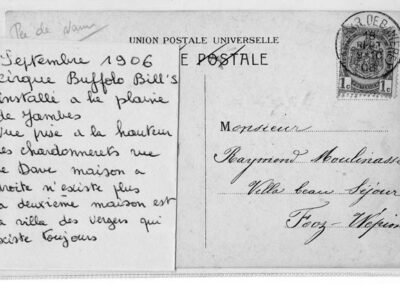 Septembre 1906
cirque Buffolo Bill's
installé a la plaine
de Jambes
Vue prise a la hauteur
des chardonnerets rue
de Dave maison a
droite n'existe plus
la deuxième maison est
la villa des vergers qui
existe toujours
UNION POSTALE UNIVERSELLE
E POSTALE
1c 1c
Monsieur
Raymond Moulinasse
Villa beau Séjour
Fooz-Wépion